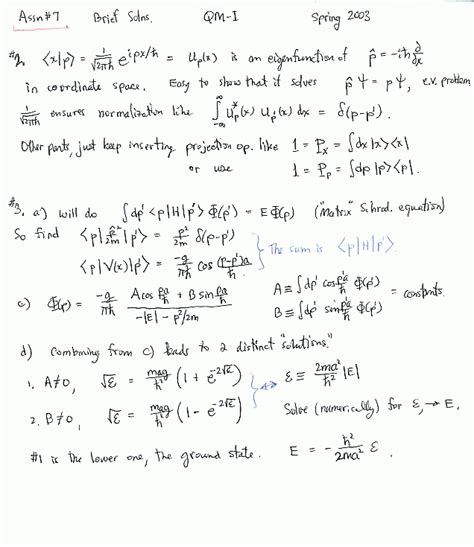 Assn#7 Brief Solns. QM-I Spring 2003
#2. ⟨x|p⟩ = 1/√(2πħ) e^{ipx/ħ} = u_p(x) is an eigenfunction of p̂ = -iħ ∂/∂x
in coordinate space. Easy to show that it solves p̂Ψ = pΨ, e.v. problem
1/√(2πħ) ensures normalization like ∫_{-∞}^{∞} u_p^*(x) u_{p'}(x) dx = δ(p-p').
Other parts, just keep inserting projection op. like 1 = P_x = ∫dx |x⟩⟨x|
or use 1 = P_p = ∫dp |p⟩⟨p|.
#3. a) will do ∫dp' ⟨p|H|p'⟩ Φ(p') = E Φ(p) ("Matrix" Schrod. equation)
So find ⟨p| p̂²/2m |p'⟩ = p²/2m δ(p-p')
⟨p|V(x)|p'⟩ = -g/πħ cos (p-p')a/ħ
} The sum is ⟨p|H|p'⟩.
c) Φ(p) = -g/πħ (A cos pa/ħ + B sin pa/ħ)/(-|E| - p²/2m)
A ≡ ∫dp' cos p'a/ħ Φ(p')
B ≡ ∫dp' sin p'a/ħ Φ(p')
} = constants.
d) Combining from c) leads to 2 distinct "solutions."
1. A≠0, √ε = mag/ħ² (1 + e^{-2√ε})
2. B≠0, √ε = mag/ħ² (1 - e^{-2√ε})
ε ≡ 2ma²/ħ² |E|
Solve (numerically) for ε, → E.
#1 is the lower one, the ground state. E = -ħ²/2ma² ε.